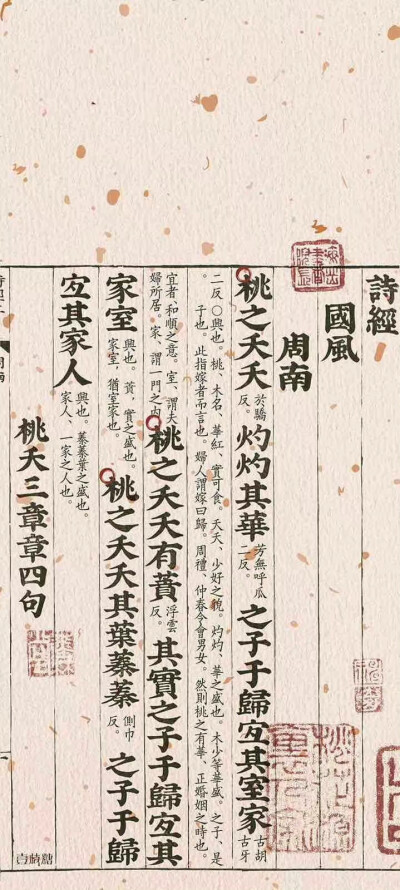 詩經
國風
周南
桃之夭夭於驕反。灼灼其華芳無呼瓜二反。之子于歸宐其室家古胡古牙
二反○興也。桃、木名、華紅、實可食。夭夭、少好之貌。灼灼、華之盛也。木少等華盛。之子、是
子也。此指嫁者而言也。婦人謂嫁曰歸。周禮、仲春令會男女。然則桃之有華、正婚姻之時也。
宜者、和順之意。室、謂夫婦所居。家、謂一門之內。桃之夭夭有蕡浮雲反。其實之子于歸宐其
家室興也。蕡、實之盛也。家室、猶室家也。桃之夭夭其葉蓁蓁側巾反。之子于歸
宐其家人興也。蓁蓁葉之盛也。家人、一家之人也。
桃夭三章章四句